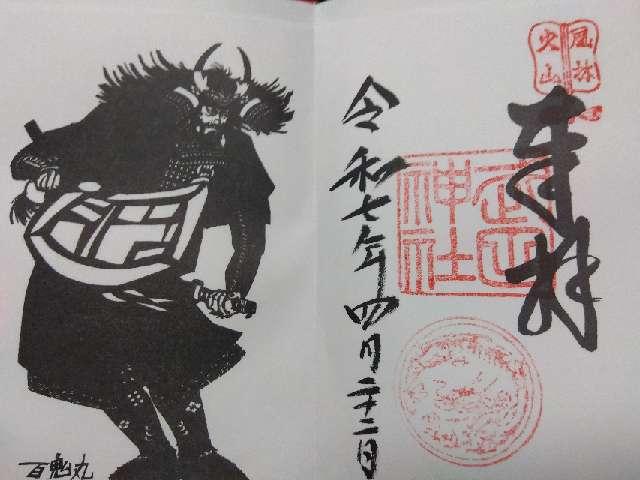 風林
火山
奉拝
武田神社
令和七年四月二十二日
百鬼丸